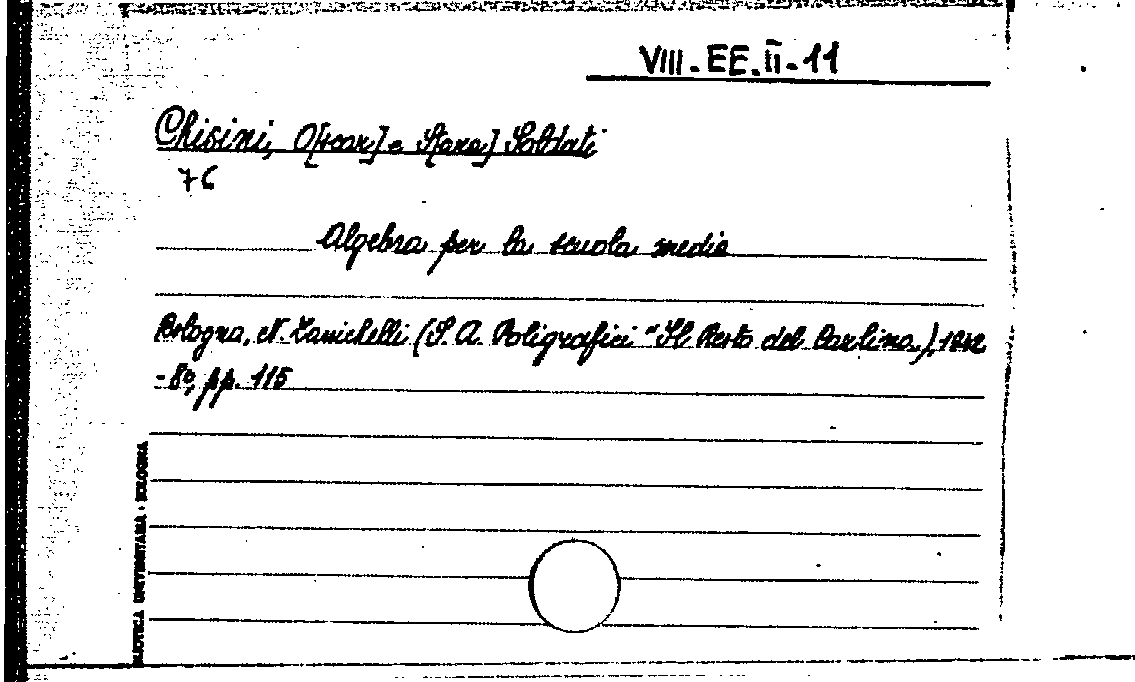 VIII. EE. II - 11
Chisini, O[scar] e Soldati
76
Algebra per la scuola media
Bologna, N. Zanichelli (S. A. Poligrafici "Il Resto del Carlino"), 1942
- 8º, pp. 115
BIBLIOTECA UNIVERSITARIA - BOLOGNA